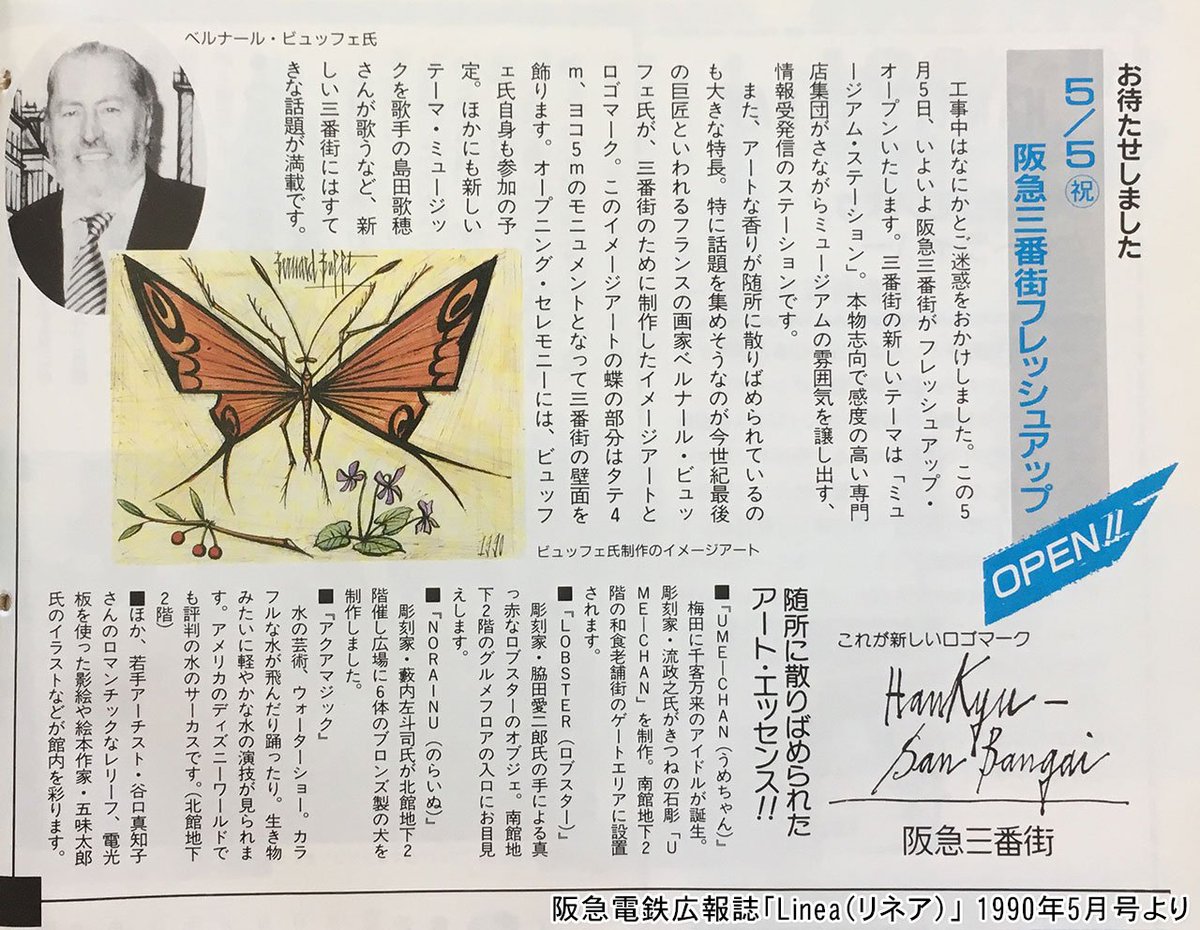 お待たせしました
5/5㊗
阪急三番街フレッシュアップ
OPEN!!
工事中はなにかとご迷惑をおかけしました。この5
月5日、いよいよ阪急三番街がフレッシュアップ・
オープンいたします。三番街の新しいテーマは「ミュ
ージアム・ステーション」。本物志向で感度の高い専門
店集団がさながらミュージアムの雰囲気を譲し出す、
情報受発信のステーションです。
また、アートな香りが随所に散りばめられているの
も大きな特長。特に話題を集めそうなのが今世紀最後
の巨匠といわれるフランスの画家ベルナール・ビュッ
フェ氏が、三番街のために制作したイメージアートと
ロゴマーク。このイメージアートの蝶の部分はタテ4
m、ヨコ5mのモニュメントとなって三番街の壁面を
飾ります。オープニング・セレモニーには、ビュッフ
ェ氏自身も参加の予
定。ほかにも新しい
テーマ・ミュージッ
クを歌手の島田歌穂
さんが歌うなど、新
しい三番街にはすて
きな話題が満載です。
ベルナール・ビュッフェ氏
Bernard Buffet
1990
ビュッフェ氏制作のイメージアート
これが新しいロゴマーク
HanKyu-
San Bangai
阪急三番街
随所に散りばめられた
アート・エッセンス!!
■『UMEICHAN(うめちゃん)』
梅田に千客万来のアイドルが誕生。
彫刻家・流政之氏がきつねの石彫「U
MEICHAN」を制作。南館地下2
階の和食老舗街のゲートエリアに設置
されます。
■『LOBSTER(ロブスター)』
彫刻家・脇田愛二郎氏の手による真
っ赤なロブスターのオブジェ。南館地
下2階のグルメフロアの入口にお目見
えします。
■『NORAINU(のらいぬ)』
彫刻家・籔内左斗司氏が北館地下2
階催し広場に6体のブロンズ製の犬を
制作しました。
■『アクアマジック』
水の芸術、ウォーターショー。カラ
フルな水が飛んだり踊ったり。生き物
みたいに軽やかな水の演技が見られま
す。アメリカのディズニーワールドで
も評判の水のサーカスです。(北館地下
2階)
■ほか、若手アーチスト・谷口真知子
さんのロマンチックなレリーフ、電光
板を使った影絵や絵本作家・五味太郎
氏のイラストなどが館内を彩ります。
阪急電鉄広報誌「Linea(リネア)」 1990年5月号より